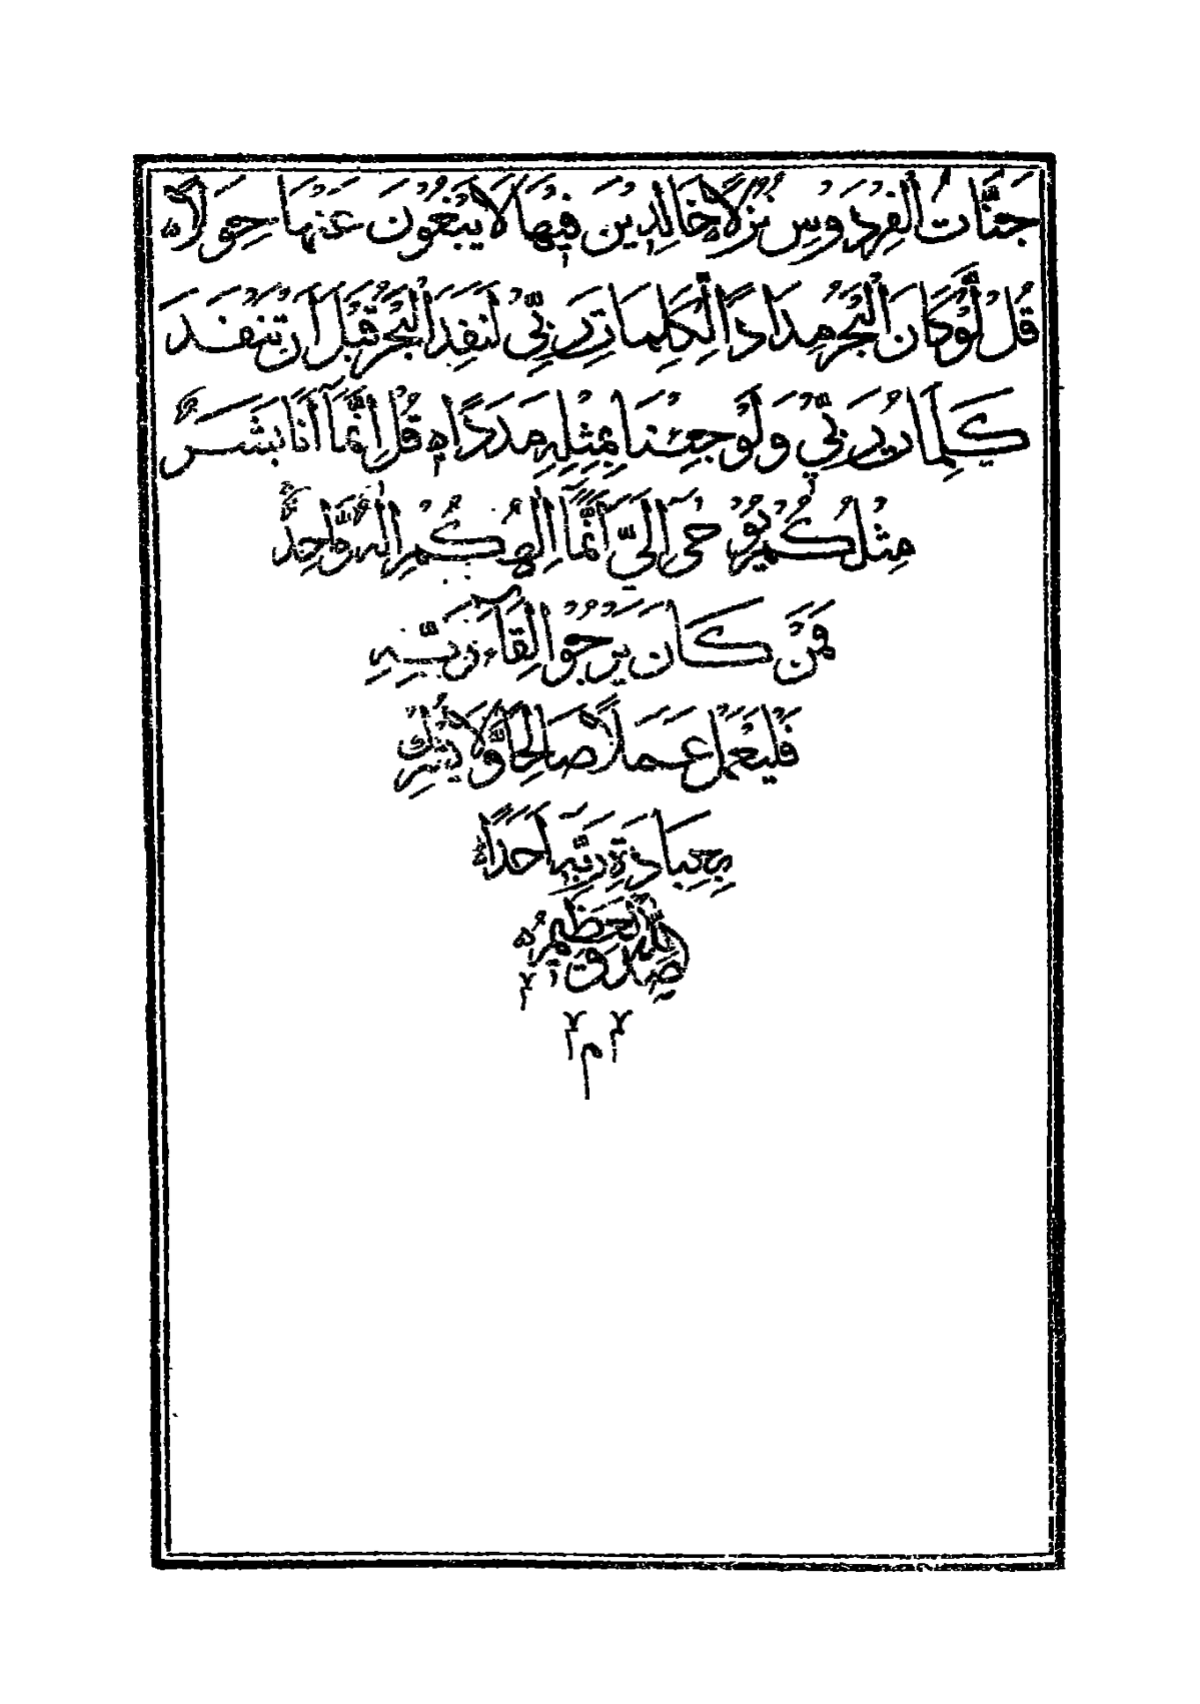 جَنَّاتُ الْفِرْدَوْسِ نُزُلًا خَالِدِينَ فِيهَا لَا يَبْغُونَ عَنْهَا حِوَلًا ه
قُلْ لَّوْ كَانَ الْبَحْرُ مِدَادًا لِّكَلِمَاتِ رَبِّيْ لَنَفِدَ الْبَحْرُ قَبْلَ اَنْ تَنْفَدَ
كَلِمَاتُ رَبِّيْ وَلَوْ جِئْنَا بِمِثْلِهٖ مَدَدًا ه قُلْ اِنَّمَآ اَنَا بَشَرٌ
مِثْلُكُمْ يُوْحٰى اِلَيَّ اَنَّمَآ اِلٰهُكُمْ اِلٰهٌ وَّاحِدٌ
فَمَنْ كَانَ يَرْجُوْا لِقَآءَ رَبِّهٖ
فَلْيَعْمَلْ عَمَلًا صَالِحًا وَّلَا يُشْرِكْ
بِعِبَادَةِ رَبِّهٖ اَحَدًا ه
صَدَقَ اللّٰهُ الْعَظِيْمُ ه
م